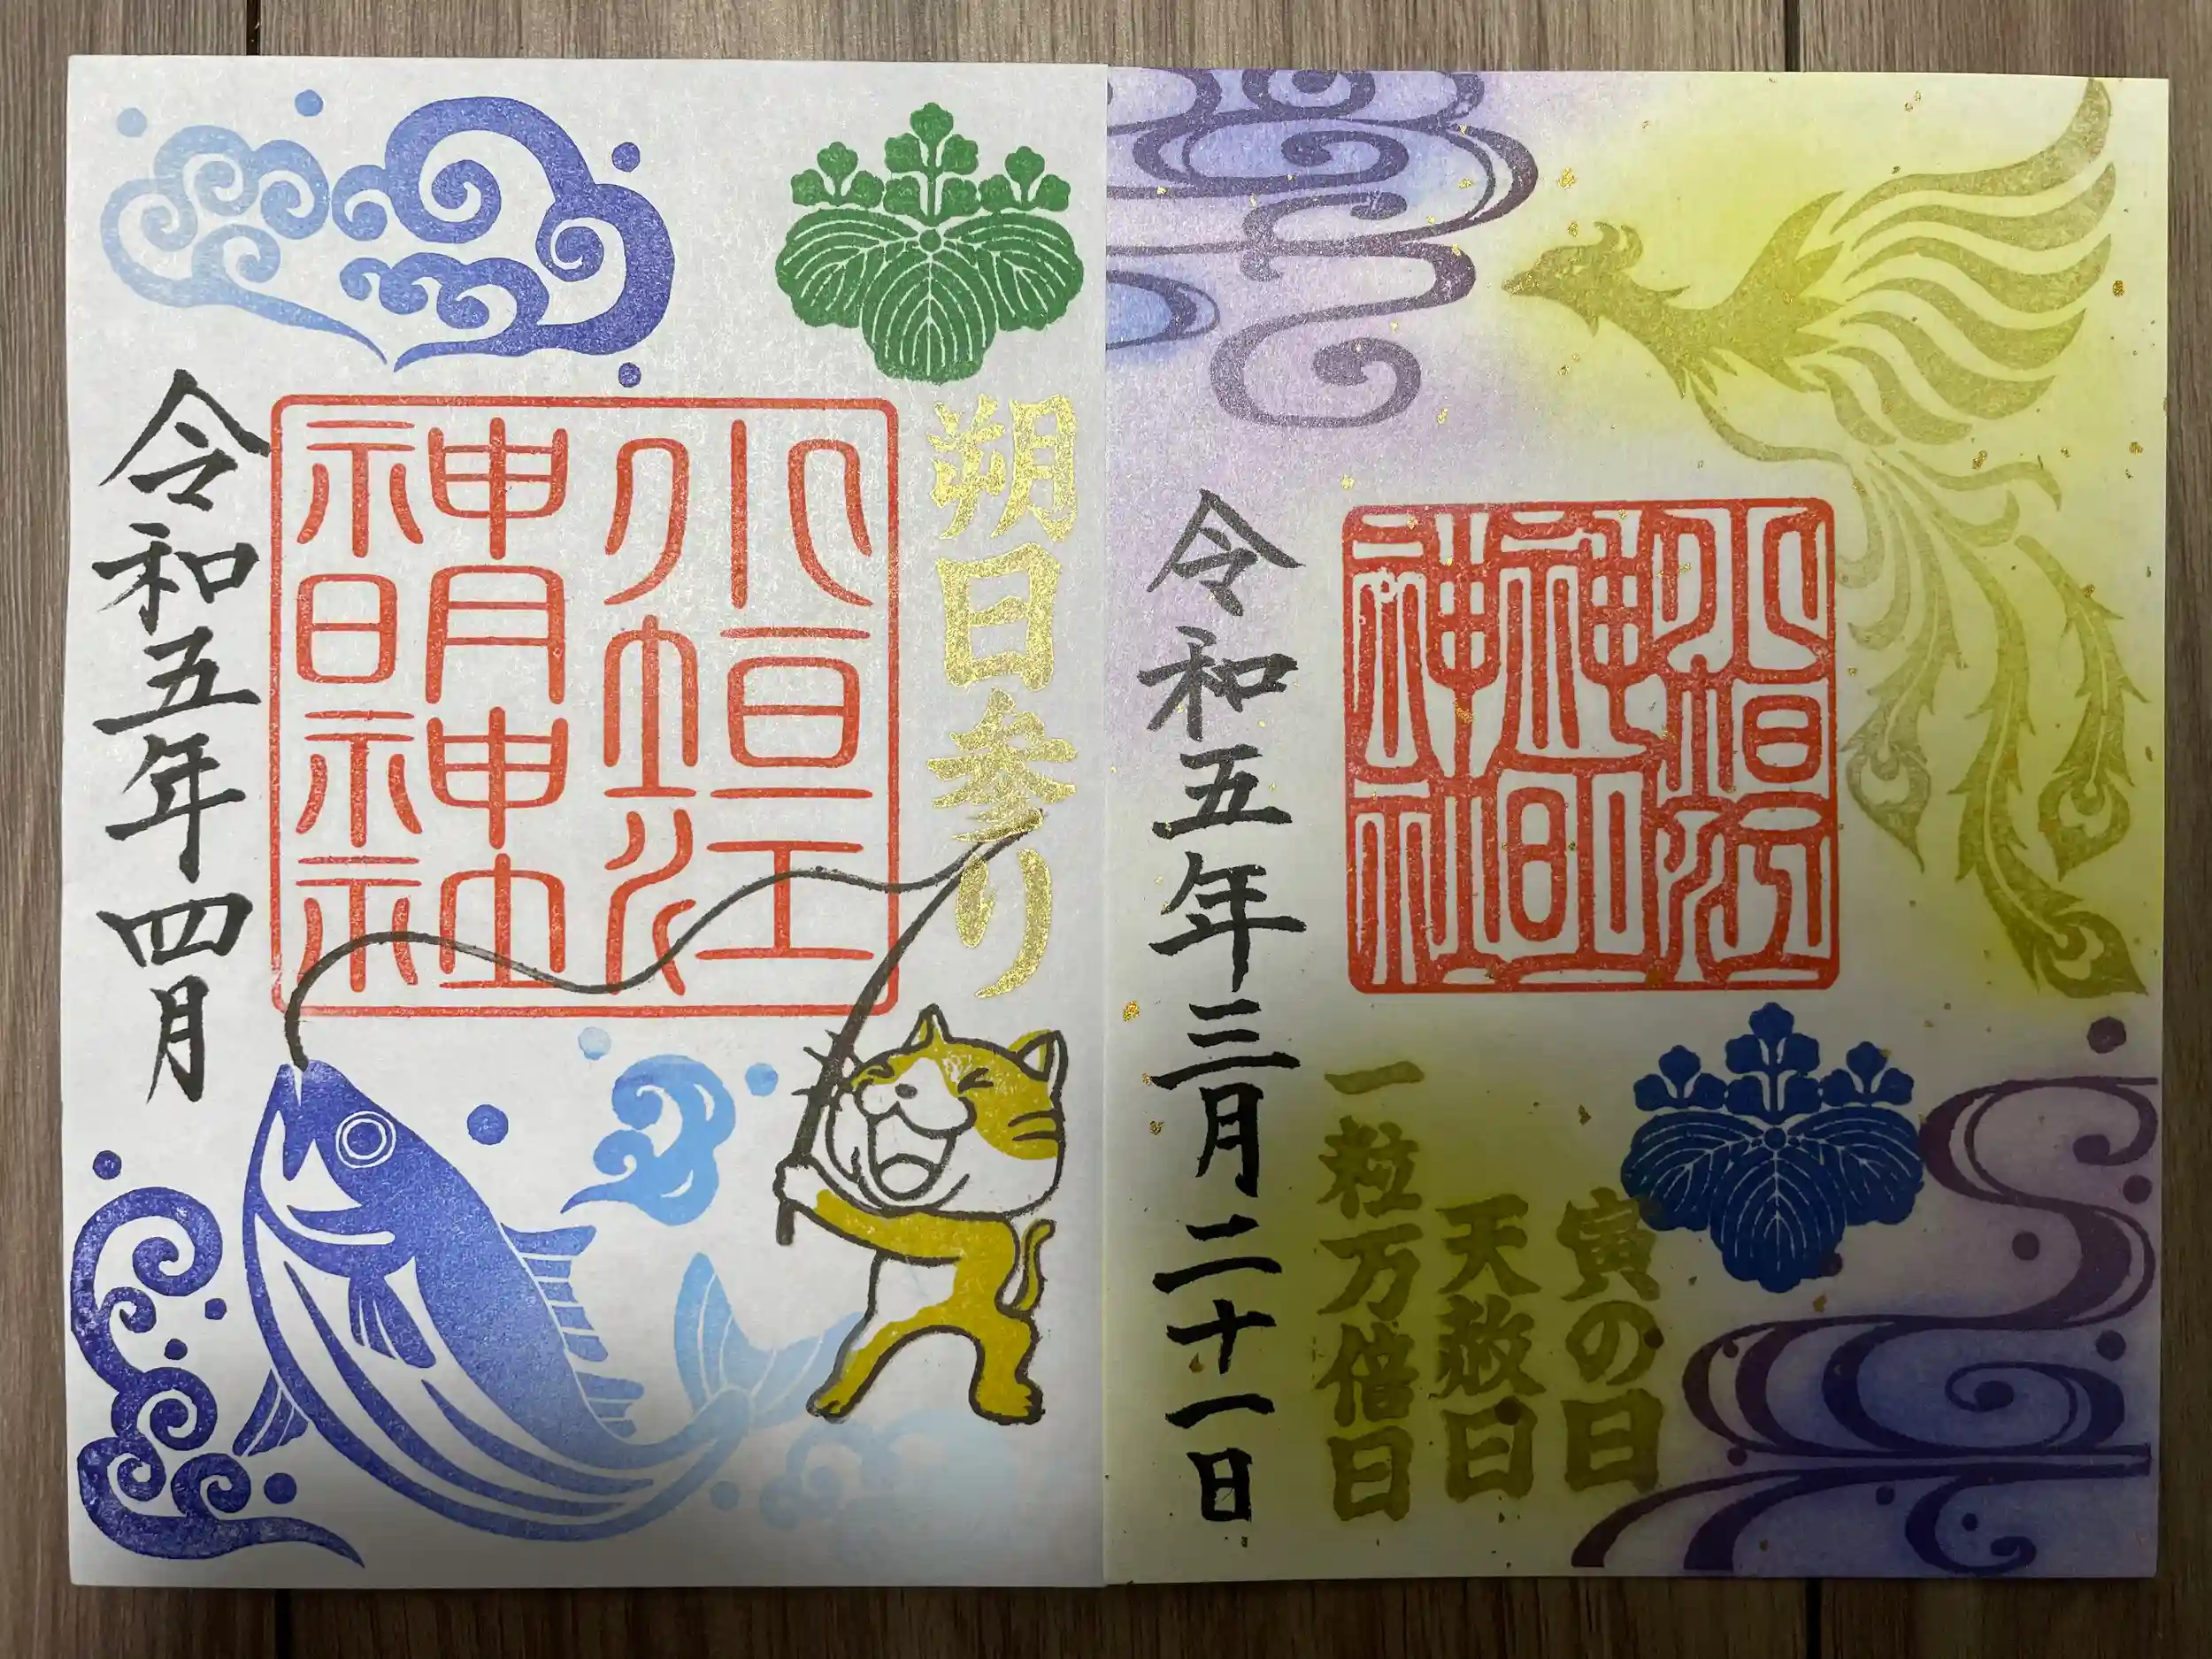 朔日参り
小垣江
神明神社
令和五年四月
小垣江
神明
神社
寅の日
天赦日
一粒万倍日
令和五年三月二十一日